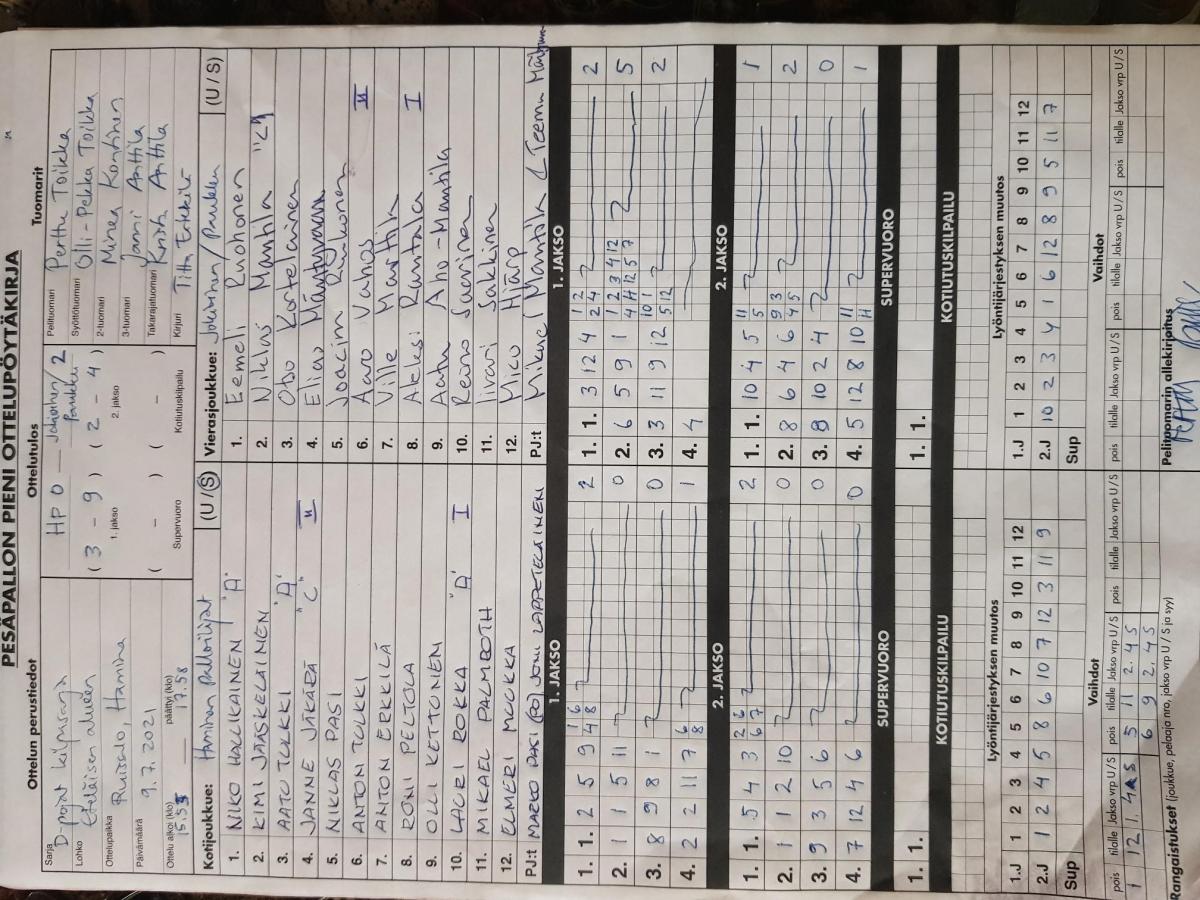 PESÄPALLON PIENI OTTELUPÖYTÄKIRJA
Ottelun perustiedot
Sarja
D-pojat kilpasarja
Lohko
Eteläisen alueen
Ottelupaikka
Ruissalo, Hamina
Päivämäärä
9.7.2021
Ottelu alkoi (klo)
päättyi (klo)
17.58
Ottelutulos
HP 0 — Jokiohen/ Paukku 2
( 3 - 9 ) ( 2 - 4 )
1. jakso 2. jakso
( - ) ( - )
Supervuoro Kotiutuskilpailu
Tuomarit
Pelituomari Perttu Toikka
Syöttötuomari Olli-Pekka Toikka
2-tuomari Minea Kontinen
3-tuomari Janni Anttila
Takarajatuomari Krista Anttila
Kirjuri Titta Erkkilä
Kotijoukkue: Haminan Palloilijat (U / S)
1. NIKO HALLIKAINEN "A"
2. KIMI JÄÄSKELÄINEN
3. AATU TULKKI "A"
4. JANNE JÄKÄRÄ "C" II
5. NIKLAS PASI
6. ANTON TULKKI
7. ANTON ERKKILÄ
8. RONI PELTOLA
9. OLLI KETTUNEN
10. LAURI ROKKA "A" I
11. MIKAEL PALMROTH
12. ELMERI MUUKKA
PJ:t MARKO PASI (PO) JONI LAPPETELÄINEN
Vierasjoukkue: (U / S)
1. Eemeli Ruohonen
2. Niklas Mantila
3. Obo Kortelainen
4. Elias
5. Joacim
6. Aaro Vahos II
7. Ville Marttila
8. Aleksi Rantala I
9. Aatu Aho-Mantila
10. Reino Saarinen
11. Iivari Sakkinen
12. Mico Hjärp
PJ:t Mikael Mantila ( Teemu
1. JAKSO
1. 1. 2 5 9 1 4 6 8 2
2. 1 1 5 11 0
3. 8 9 8 1 0
4. 2 2 11 7 6 8 1
2. JAKSO
1. 1. 5 4 3 2 6 6 7 2
2. 1 1 2 10 0
3. 9 3 5 6 0
4. 7 12 4 6 0
SUPERVUORO
1. 1.
KOTIUTUSKILPAILU
1. JAKSO
1. 1. 3 12 4 1 2 2 4 2
2. 6 5 9 1 1 4 2 11 3 12 4 5 12 7 5
3. 3 11 9 12 10 5 1 12 2
4. 4
2. JAKSO
1. 1. 10 4 5 11 5 1
2. 8 6 4 6 9 4 3 5 2
3. 9 10 2 4 0
4. 5 12 8 10 11 11 1
SUPERVUORO
1. 1.
KOTIUTUSKILPAILU
Lyöntijärjestyksen muutos
1.J 1 2 3 4 5 6 7 8 9 10 11 12
2.J 1 2 4 5 8 6 10 7 12 3 11 9
Sup
Vaihdot
pois tilalle Jakso vrp U/S pois tilalle Jakso vrp U/S pois tilalle Jakso vrp U/S
1 12 1. 4 S 5 11 2. 4 S
6 9 2. 4 S
Rangaistukset (joukkue, pelaaja nro, jakso vrp U / S ja syy)
Lyöntijärjestyksen muutos
1.J 1 2 3 4 5 6 7 8 9 10 11 12
2.J 10 2 3 4 1 6 12 8 9 5 11 7
Sup
Vaihdot
pois tilalle Jakso vrp U/S pois tilalle Jakso vrp U/S pois tilalle Jakso vrp U/S
Pelituomarin allekirjoitus